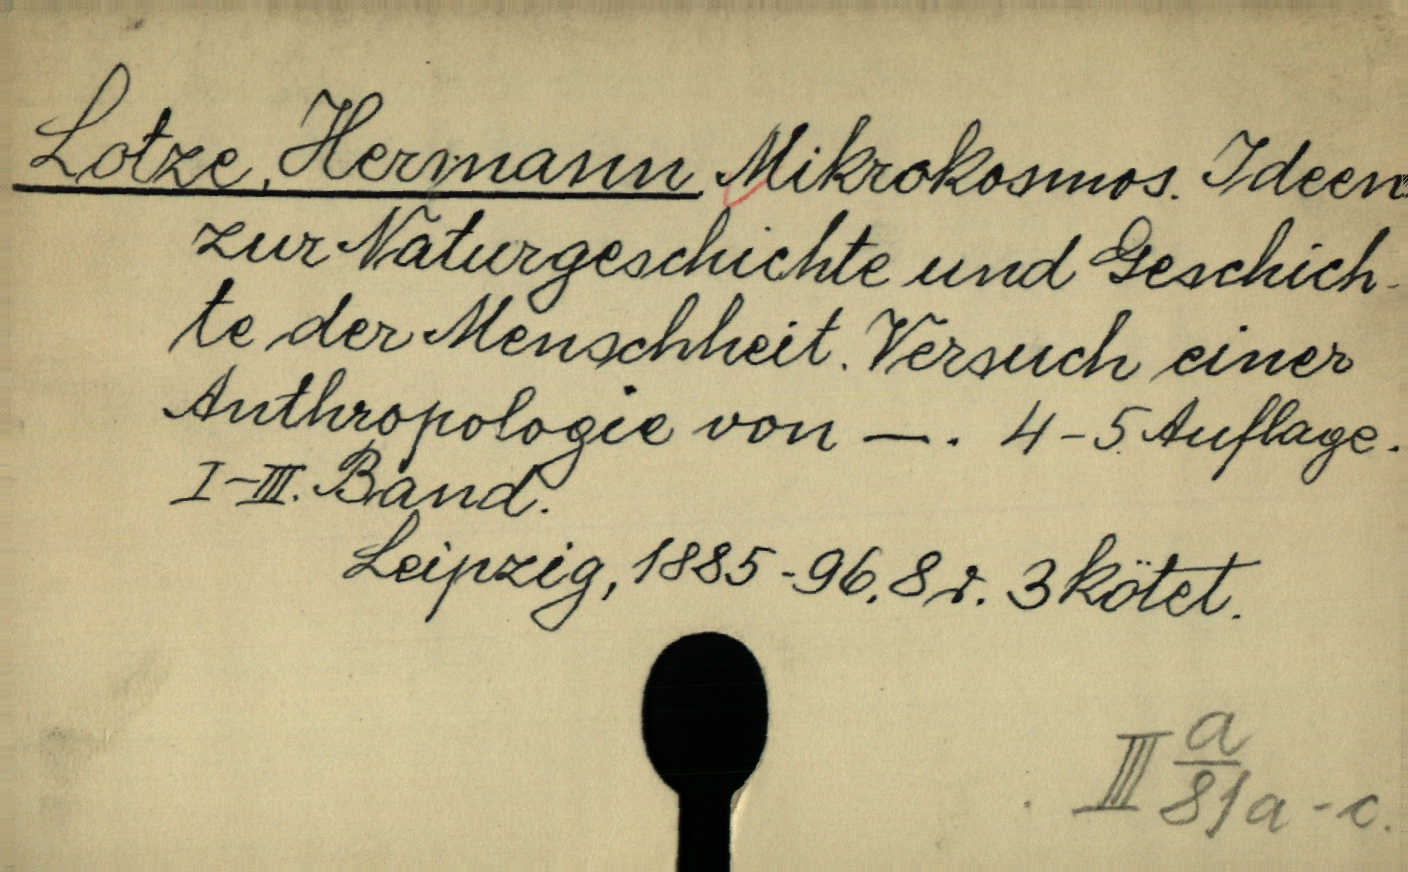 Lotze, Hermann. Mikrokosmos. Ideen
zur Naturgeschichte und Geschich-
te der Menschheit. Versuch einer
Anthropologie von —. 4-5. Auflage.
I-III. Band.
Leipzig, 1885-96. 8r. 3 kötet.
III a/81a-c.